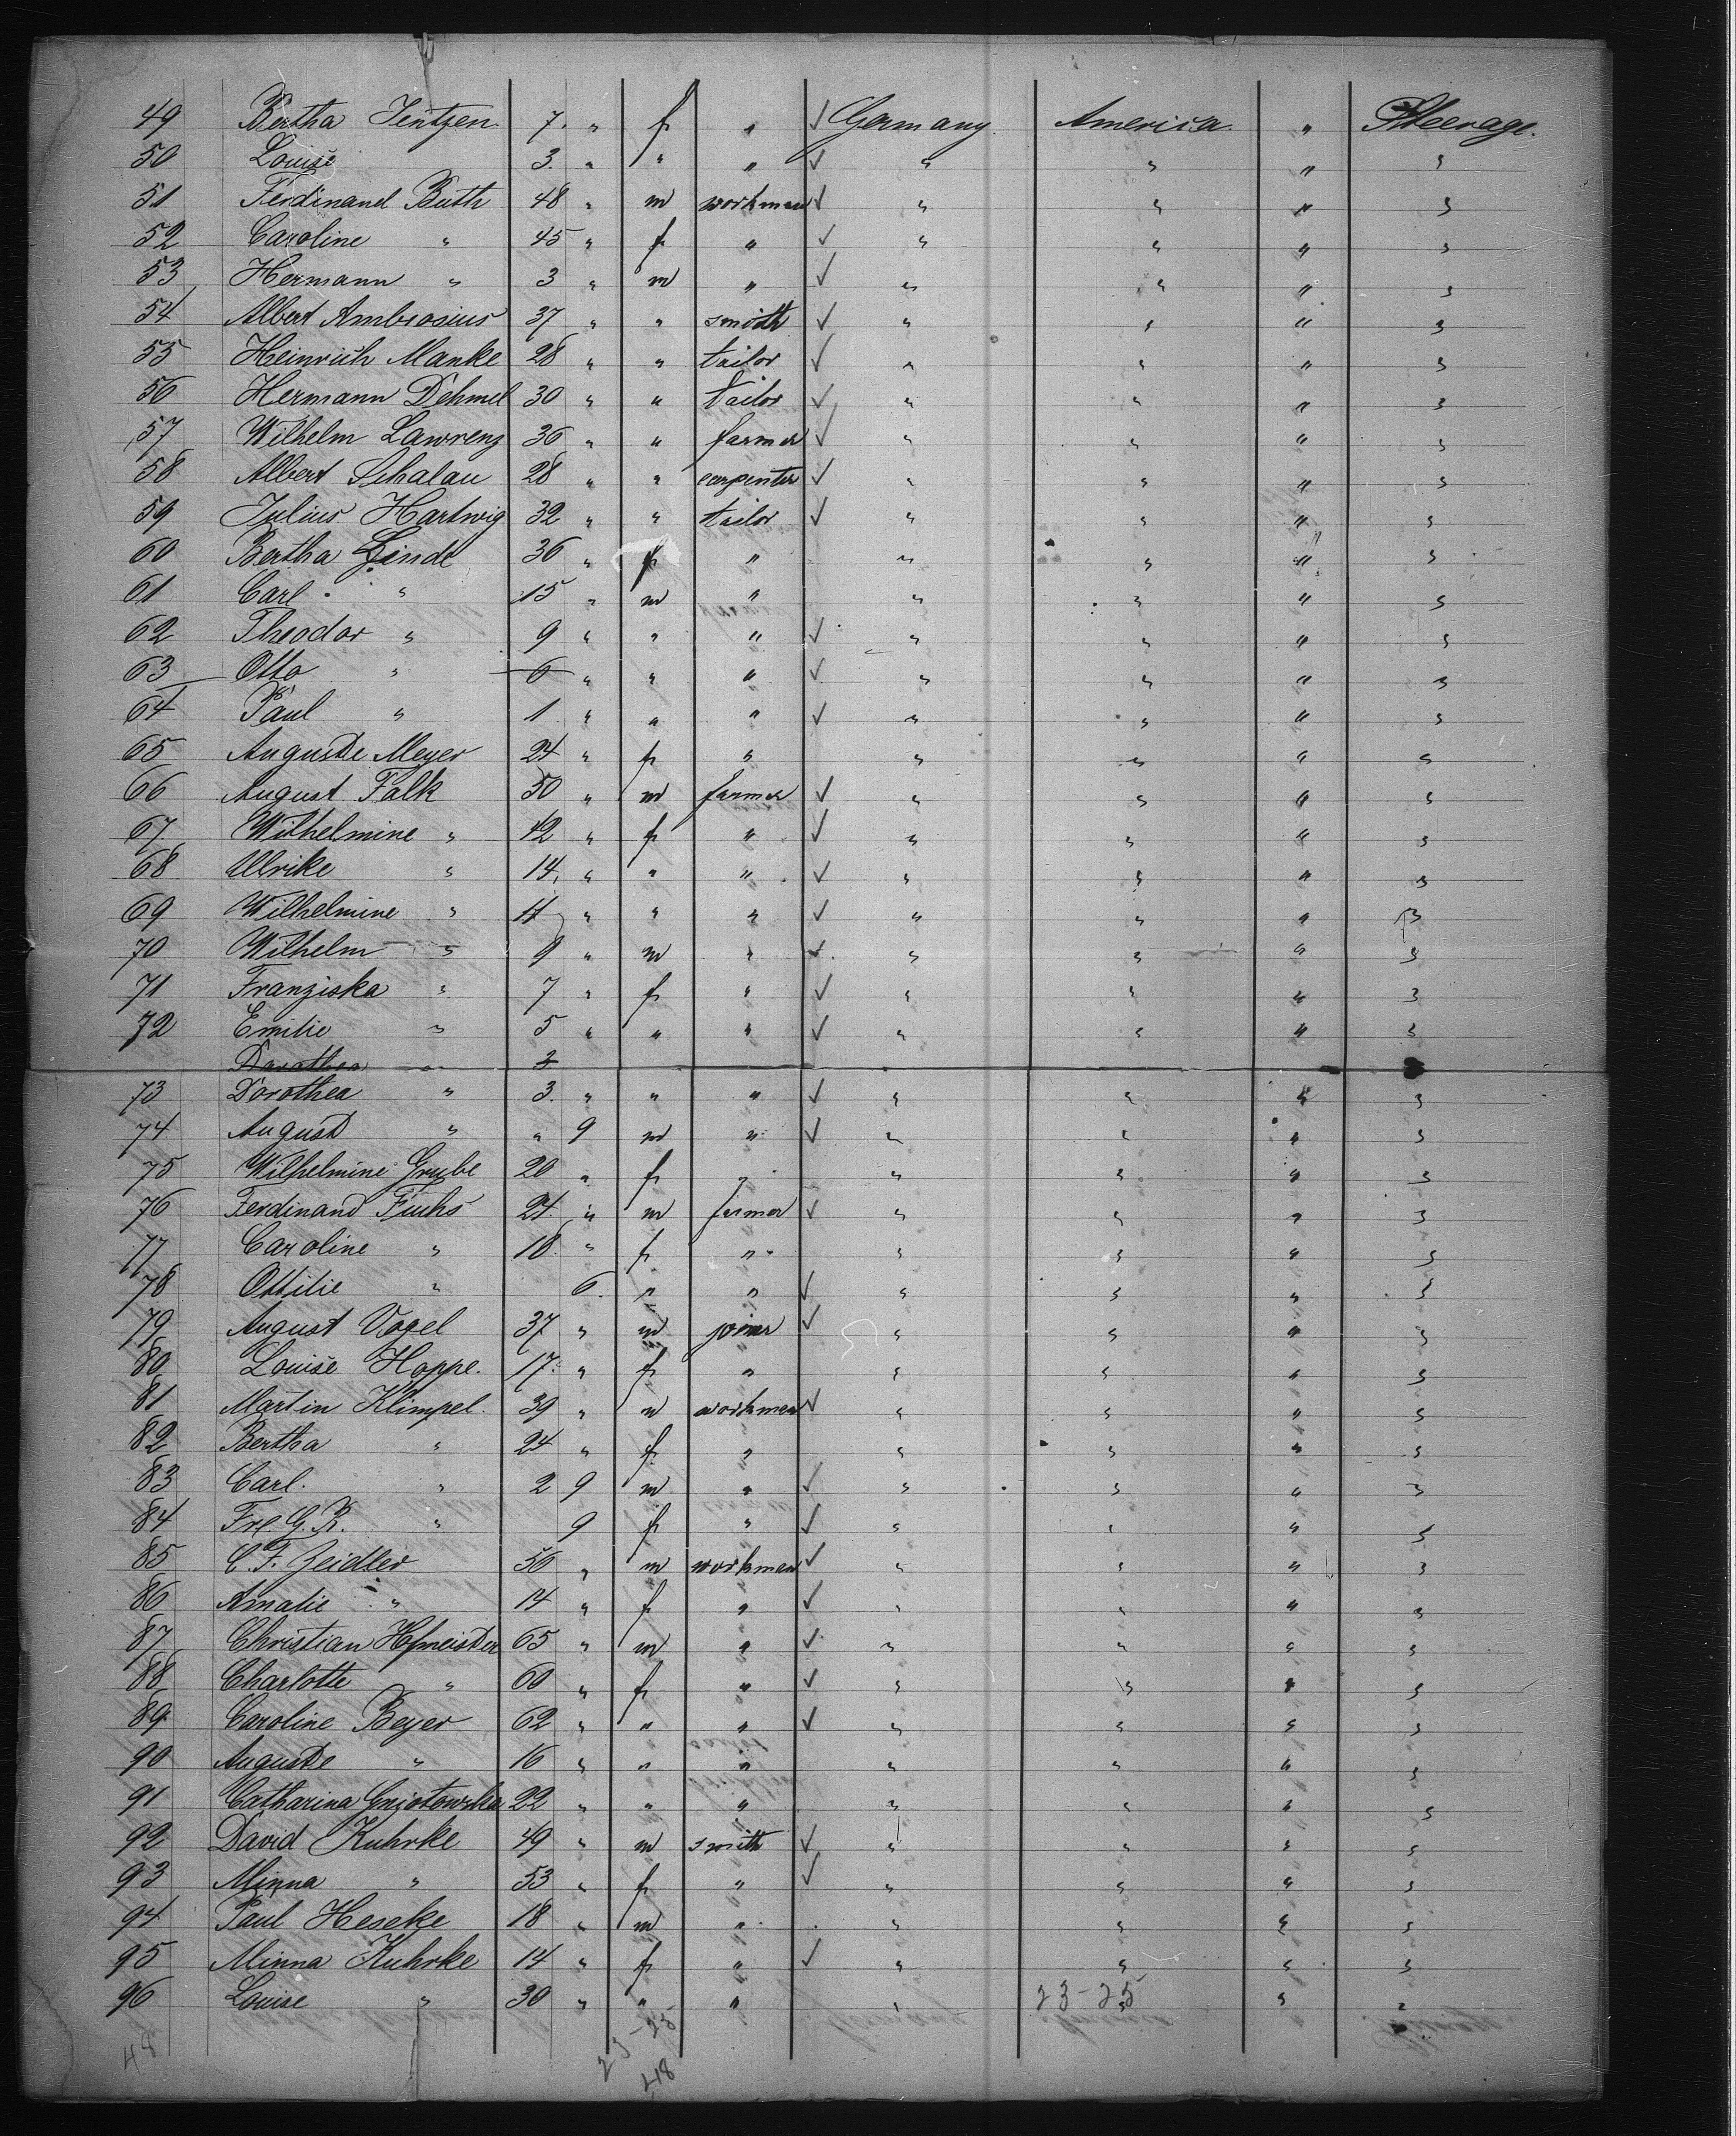 49 Bertha Jentzen 7. " f " ✓ Germany America " Steerage.
50 Louise 3. " " " ✓ " " " "
51 Ferdinand Buth 48 " m workman ✓ " " " "
52 Caroline " 45 " f " ✓ " " " "
53 Hermann " 3 " m " ✓ " " " "
54 Albert Ambrosius 37 " " smith ✓ " " " "
55 Heinrich Manke 28 " " tailor ✓ " " " "
56 Hermann Dehmel 30 " " tailor ✓ " " " "
57 Wilhelm Lawrenz 36 " " farmer ✓ " " " "
58 Albert Schalau 28 " " carpenter ✓ " " " "
59 Julius Hartwig 32 " " tailor ✓ " " " "
60 Bertha Linde 36 " f " " " " "
61 Carl " 15 " m " " " " "
62 Theodor " 9 " " " ✓ " " " "
63 Otto " 6 " " " ✓ " " " "
64 Paul " 1 " " " ✓ " " " "
65 Auguste Meyer 24 " f " " " " "
66 August Falk 50 " m farmer ✓ " " " "
67 Wilhelmine " 42 " f " ✓ " " " "
68 Ulrike " 14, " " " ✓ " " " "
69 Wilhelmine " 11 " " " ✓ " " " "
70 Wilhelm " 9 " m " ✓ " " " "
71 Franziska " 7 " f " ✓ " " " "
72 Emilie " 5 " " " ✓ " " " "
Dorothea " 3
73 Dorothea " 3. " " " ✓ " " " "
74 August " " 9 m " ✓ " " " "
75 Wilhelmine Grube 20 " f " " " " "
76 Ferdinand Fuchs 24. " m farmer ✓ " " " "
77 Caroline " 18. " f " " " " "
78 Ottilie " 6. " " ✓ " " " "
79 August Vogel 37 " m joiner ✓ " " " "
80 Louise Hoppe. 17. " f " " " " "
81 Martin Klimpel. 39 " m workman ✓ " " " "
82 Bertha " 24 " f " " " " "
83 Carl. " 2 9 m " ✓ " " " "
84 Fre. G. R. " 9 f " ✓ " " " "
85 C. F. Zeidler 56 " m workman ✓ " " " "
86 Amalie " 14 " f " ✓ " " " "
87 Christian Hofmeister 65 " m " ✓ " " " "
88 Charlotte " 60 " f " ✓ " " " "
89. Caroline Beyer 62 " " " ✓ " " " "
90 Auguste " 16 " " " " " " "
91 Catharina 22 " " " " " " "
92 David Kuhrke 49 " m smith ✓ " " " "
93 Minna " 53 " f " ✓ " " " "
94 Paul Heseke 18 " m " " " " "
95 Minna Kuhrke 14 " f " ✓ " " " "
96 Louise " 30 " " " " 23-25 " " "
48 23-25
48